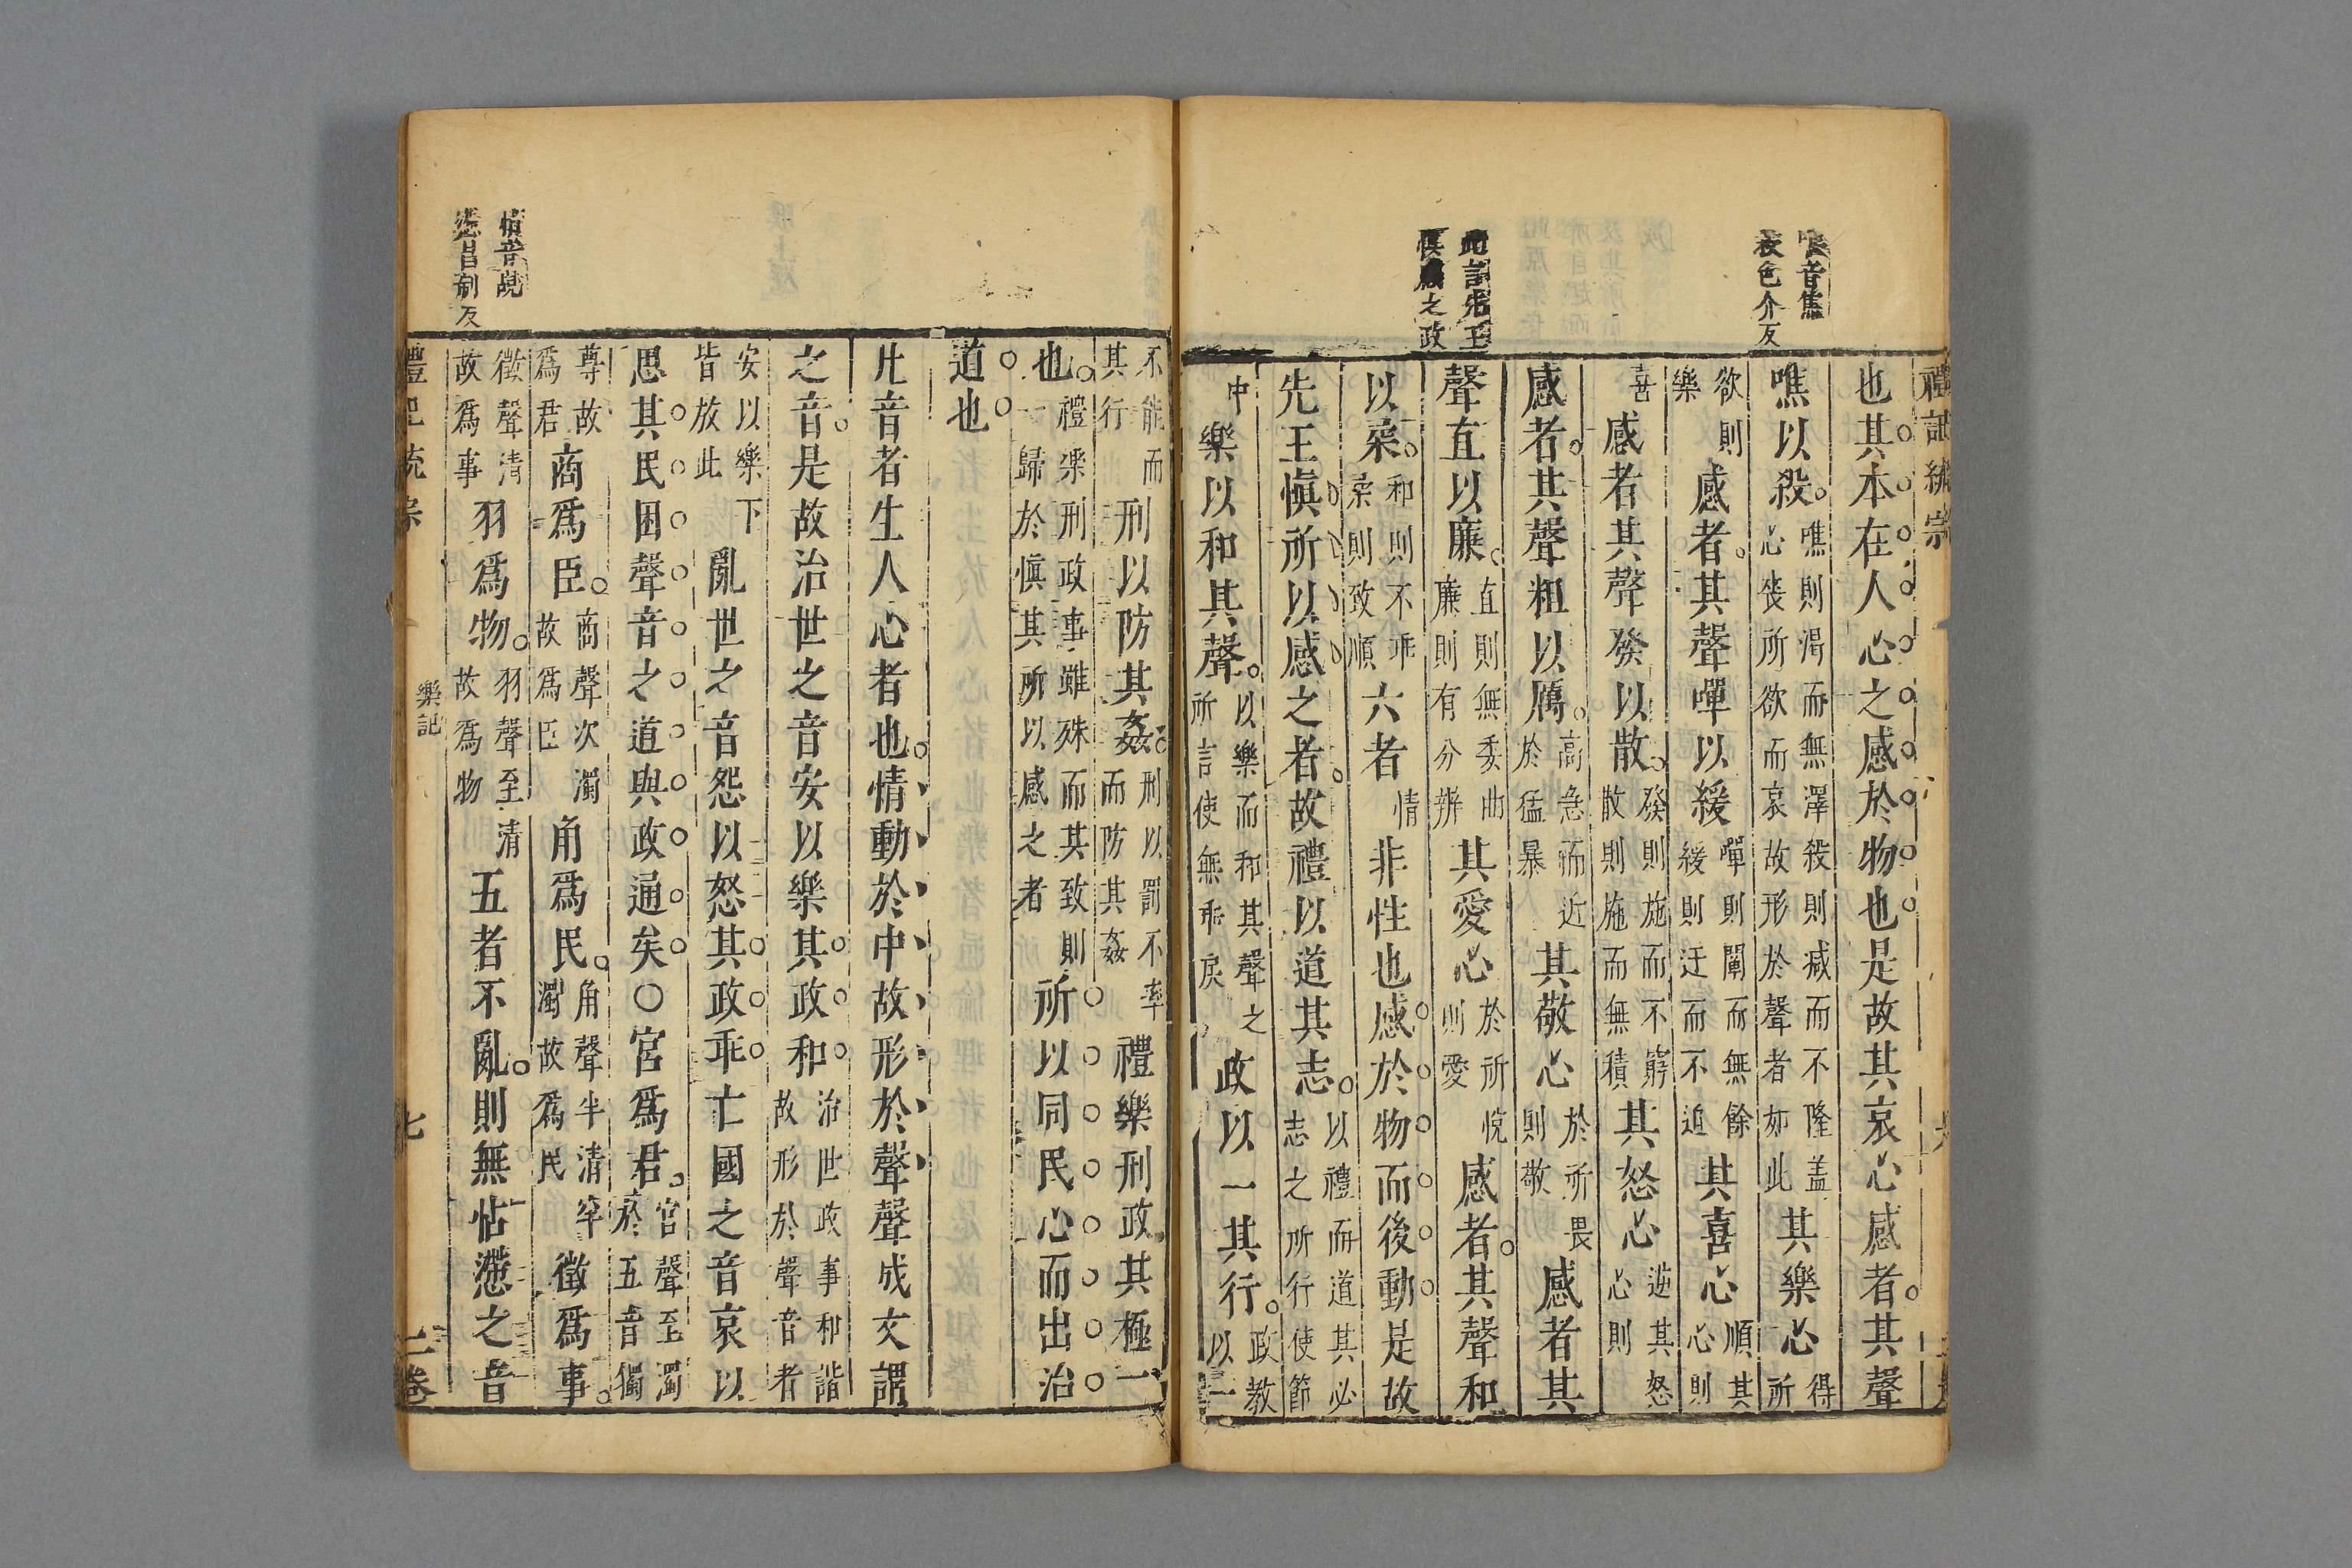 禮記統宗
噍音焦
殺色介反
也其本在人心之感於物也是故其哀心感者其聲
噍以殺噍則渴而無澤殺則減而不隆盖心喪所欲而哀故形於聲者如此其樂心得所
欲則樂感者其聲嘽以緩嘽則闡而無餘緩則迂而不迫其喜心順其心則
喜感者其聲發以散發則施而不窮散則施而無積其怒心逆其心則怒
感者其聲粗以厲高急而近於猛暴其敬心於所畏則敬感者其
聲直以廉直則無委曲廉則有分辨其愛心於所悅則愛感者其聲和
以柔和則不乖柔則致順六者情非性也感於物而後動是故
先王慎所以感之者故禮以道其志以禮而道其必志之所行使節
中樂以和其聲以樂而和其聲之所言使無乖戾政以一其行政教以一
先王
之政
不能而其行刑以防其姦刑以罰不率而防其姦禮樂刑政其極一
也禮樂刑政事雖殊而其致則一歸於慎其所以感之者所以同民心而出治
道也
凡音者生人心者也情動於中故形於聲聲成文謂
之音是故治世之音安以樂其政和治世政事和諧故形於聲音者
安以樂下皆放此亂世之音怨以怒其政乖亡國之音哀以
思其民困聲音之道與政通矣○宮為君宮聲至濁於五音獨
尊故為君商為臣商聲次濁故為臣角為民角聲半清半濁故為民徵為事
徵聲清故為事羽為物羽聲至清故為物五者不亂則無怗懘之音
懘昌制反
禮記統宗
樂記
七
二卷